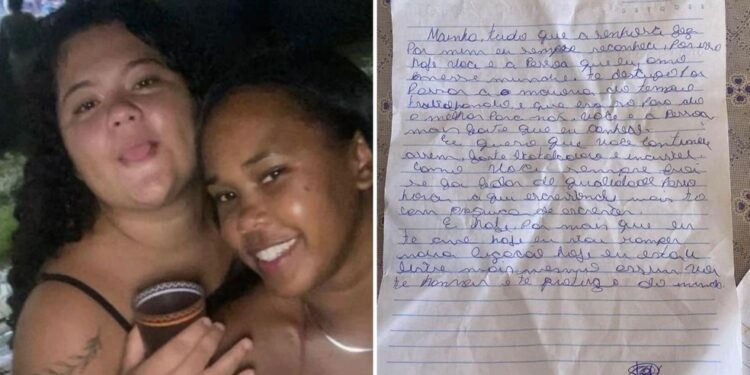 Mainha, tudo que a senhora fez
Por mim eu sempre reconheci, Por isso
hoje você é a Pessoa que eu amo
nesse mundo. te desculpa Por
Passar a maioria do tempo
trabalhando e que era so Para da
o melhor Para nos. Você é a Pessoa
mais forte que eu conheci.
Eu quero que você continue
assim, forte trabalhadora e incrivel.
Como você sempre
de qualidade
hora a qui escrevendo mais to
com preguiça de escrever.
E hoje, Por mais que eu
te ame hoje eu vou romper
nossa ligação hoje eu
livre mais mesmo assim vou
te e te protege do mundo